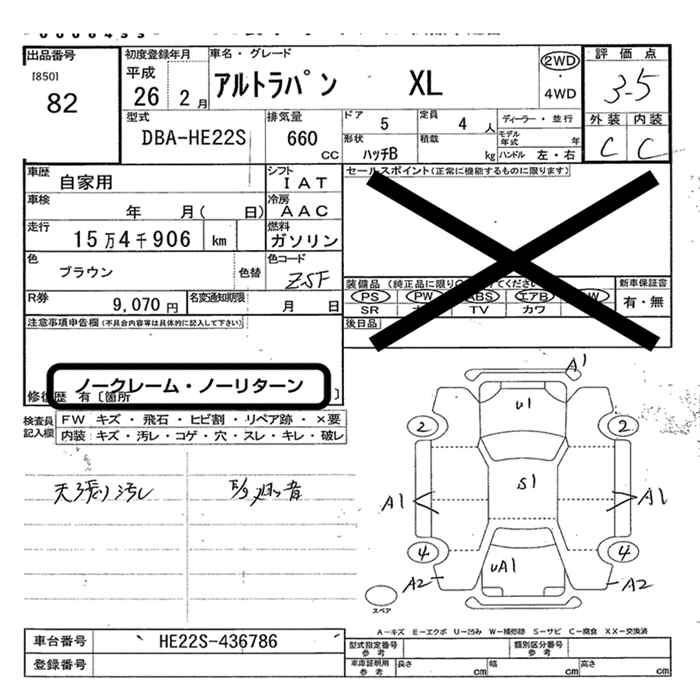 出品番号 初度登録年月 車名・グレード 2WD 評価点
[850] 平成 アルトラパン XL ・ 3.5
82 26 2月 4WD 外装 内装
型式 排気量 ドア 5 定員 4人 ディーラー・並行 C C
DBA-HE22S 660 CC 形状 ハッチB 積載 kg モデル年式 年
ハンドル 左・右
車歴 自家用 シフト IAT セールスポイント(正常に機能するものに限ります)
車検 年 月( 日) 冷房 AAC
走行 15万4千906 km 燃料 ガソリン
色 ブラウン 色替 色コード ZSF 装備品 新車保証書
PS PW ABS エアB W 有・無
R券 9,070円 名変通知期限 月 日 SR TV カワ
注意事項申告欄(不具合内容等は具体的に記入して下さい) 後日品
ノークレーム・ノーリターン
修復歴 有〔箇所 〕
検査員 FW キズ・飛石・ヒビ割・リペア跡・×要
記入欄 内装:キズ・汚レ・コゲ・穴・スレ・キレ・破レ
天張り汚レ
A1
U1
2 2
S1
A1 A1
4 4
UA1
A2 A2
スペア
A-キズ E-エクボ U-凹み W-補修跡 S-サビ C-腐食 XX-交換済
車台番号 HE22S-436786 型式指定番号 参考 類別区分番号 参考
登録番号 車庫証明用 参考 長さ cm 幅 cm 高さ cm